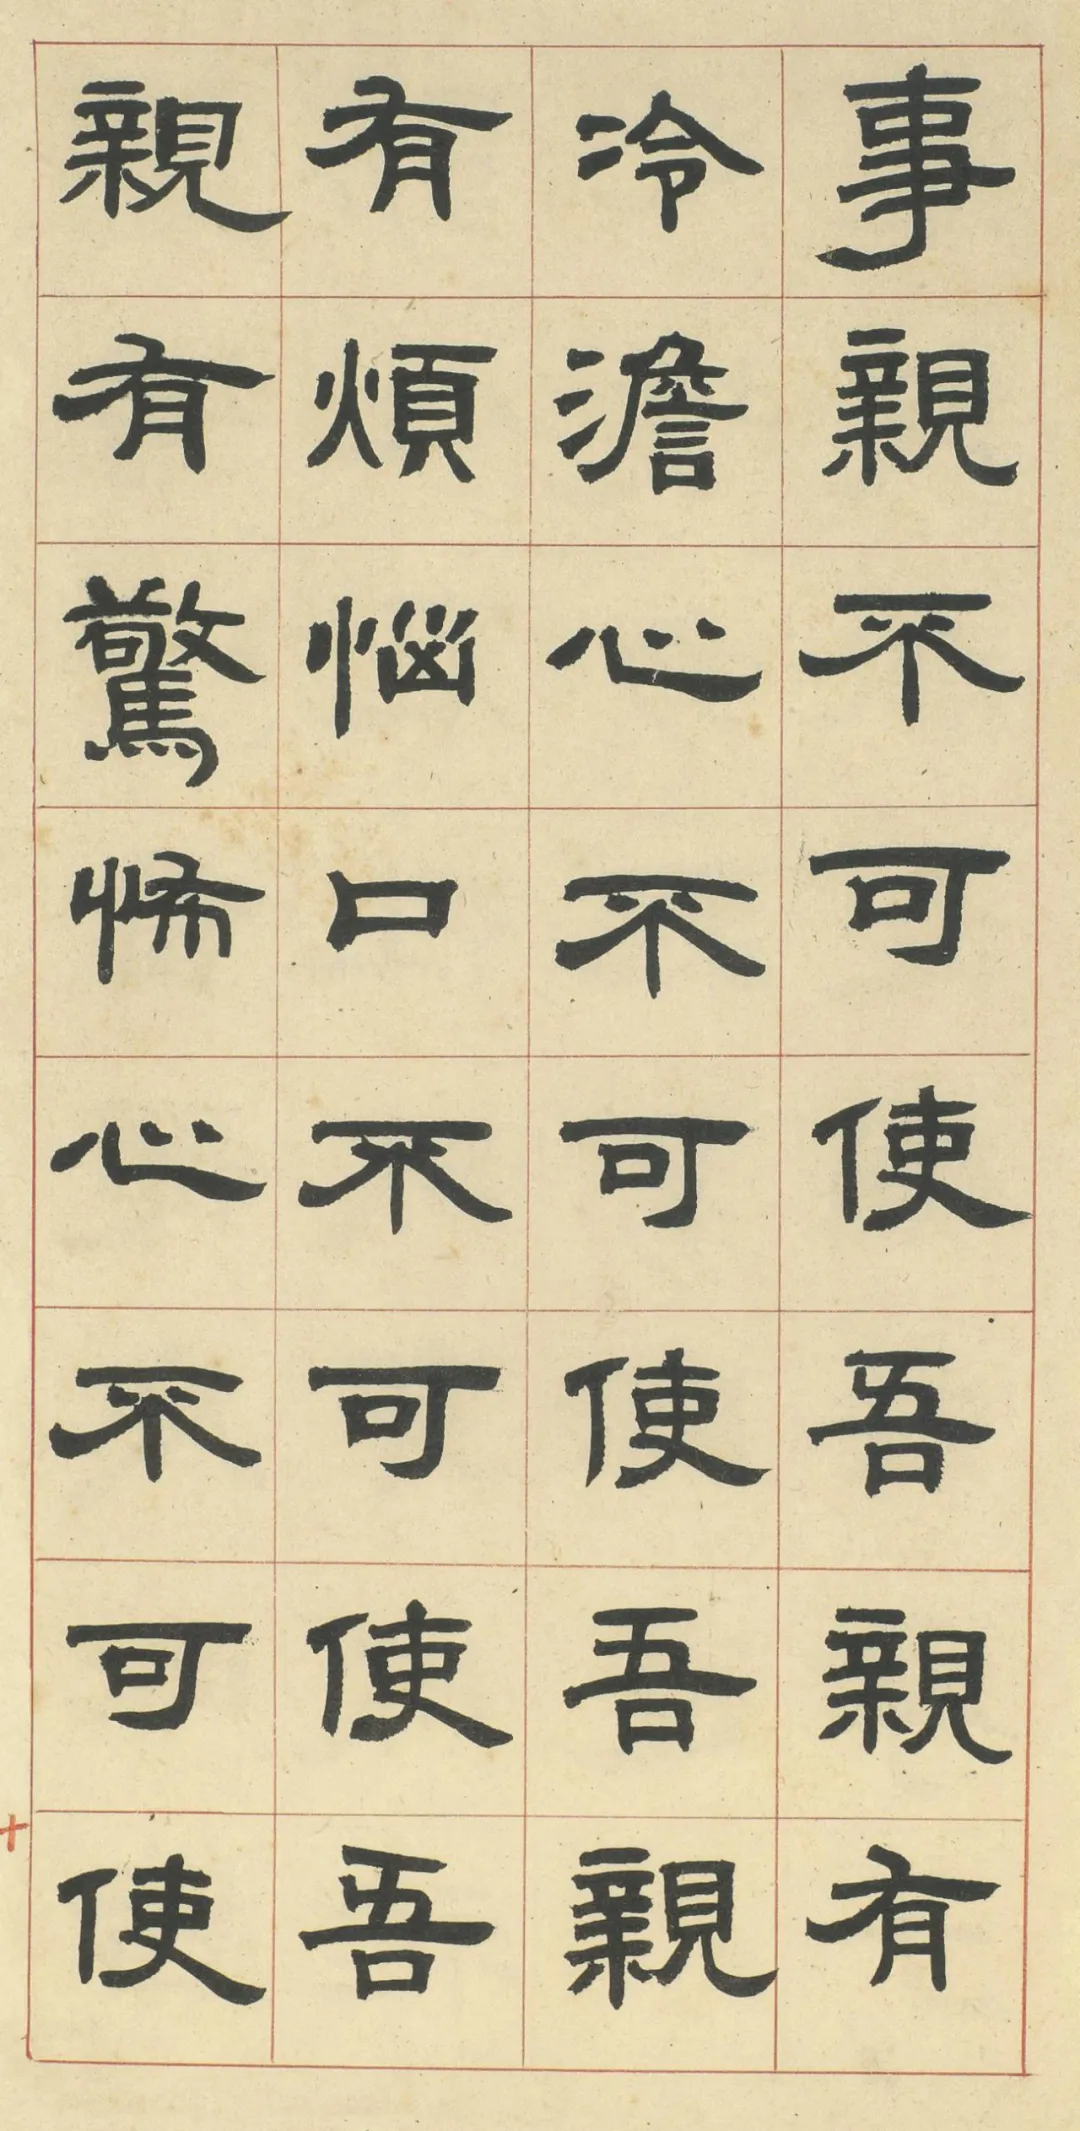 事親不可使吾親有
冷澹心不可使吾親
有煩惱口不可使吾
親有驚怖心不可使